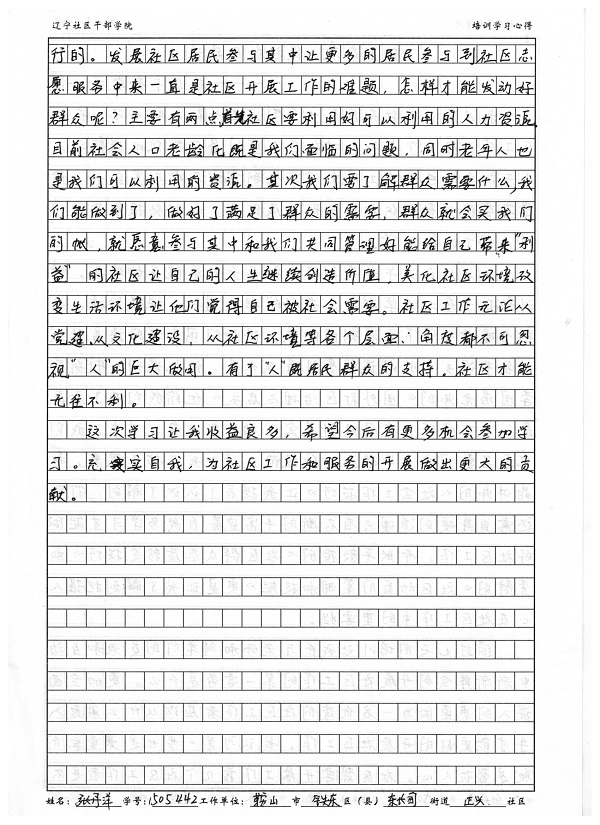 辽宁社区干部学院 培训学习心得
行的。发展社区居民参与其中让更多的居民参与到社区志
愿服务中来一直是社区开展工作的难题，怎样才能发动好
群众呢？主要有两点，首先社区要利用好可以利用的人力资源，
目前社会人口老龄化既是我们面临的问题，同时老年人也
是我们可以利用的资源。其次我们要了解群众需要什么，我
们能做到了，做好了满足了群众的需要，群众就会买我们
的帐，就愿意参与其中和我们共同管理好能给自己带来“利
益”的社区让自己的人生继续创造价值，美化社区环境改
变生活环境让他们觉得自己被社会需要。社区工作无论从
党建、从文化建设，从社区环境等各个层面、角度都不可忽
视“人”的巨大做用。有了“人”既居民群众的支持。社区才能
无往不利。
这次学习让我收益良多，希望今后有更多机会参加学
习。充实自我，为社区工作和服务的开展做出更大的贡
献。
姓名：张丹萍 学号：1505442 工作单位：鞍山 市 铁东 区（县） 东长甸 街道 正兴 社区